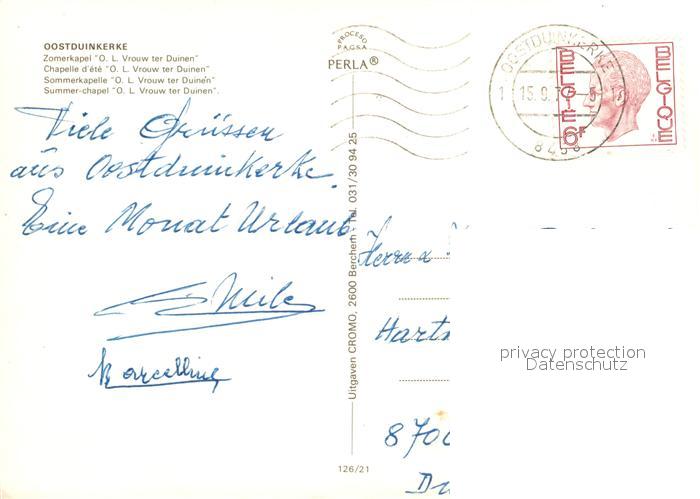 OOSTDUINKERKE
Zomerkapel "O. L. Vrouw ter Duinen"
Chapelle d'été "O. L. Vrouw ter Duinen"
Sommerkapelle "O. L. Vrouw ter Duinen"
Summer-chapel "O. L. Vrouw ter Duinen".
PROCESO
P.A.G.S.A
PERLA®
OOSTDUINKERKE
15.9.7
8458
BELGIE
BELGIQUE
6F
Viele Grüssen
aus Oostduinkerke.
Eine Monat Urlaub
Marcelline
Uitgaven CROMO, 2600 Berchem - Tel. 031/30 94 25
126/21
Herrn
Harts
870
privacy protection
Datenschutz